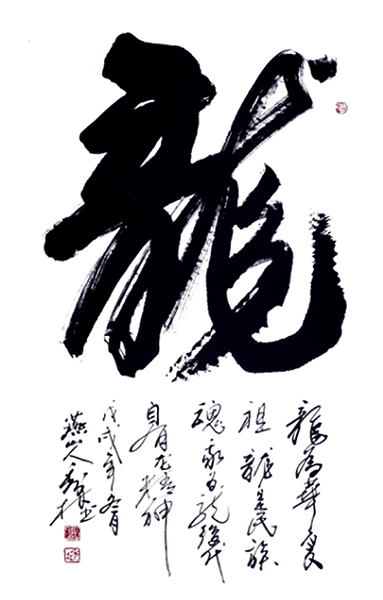 龍
龍為華夏
祖龍是民族
魂我為龍後代
自有龙精神
戊戌年冬月
燕山人